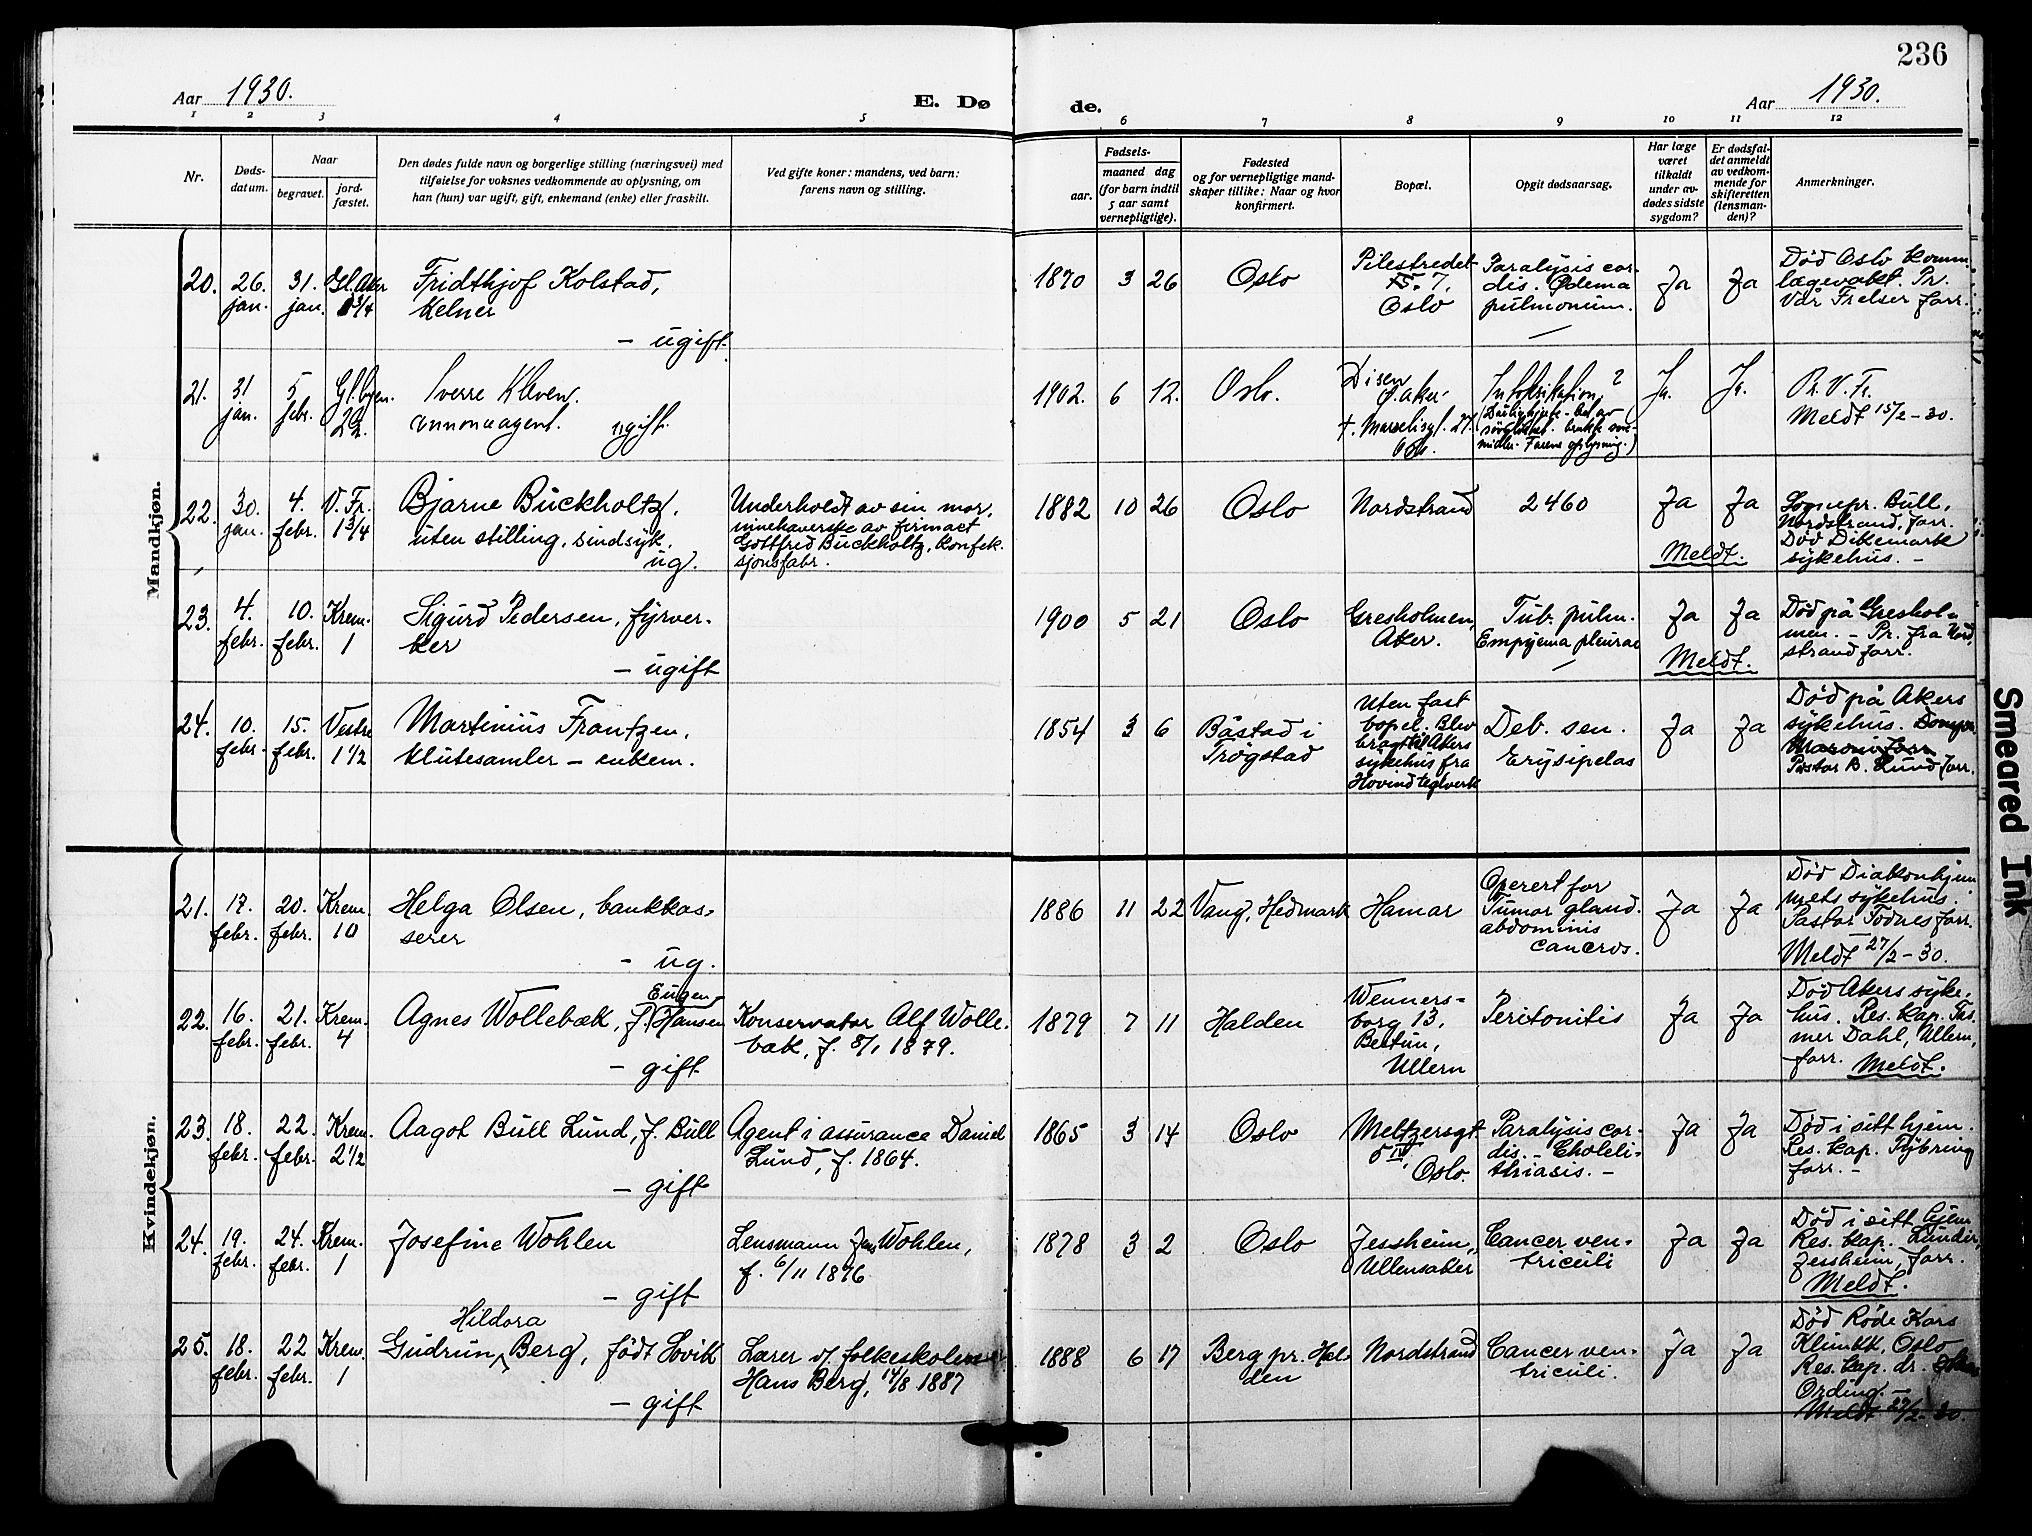 236
Aar 1930.
E. Dø de.
Aar 1930.
1 2 3 4 5 6 7 8 9 10 11 12
Nr.
Døds-
datum.
Naar
begravet.
jord-
fæstet.
Den dødes fulde navn og borgerlige stilling (næringsvei) med
tilføielse for voksnes vedkommende av oplysning, om
han (hun) var ugift, gift, enkemand (enke) eller fraskilt.
Ved gifte koner: mandens, ved barn:
farens navn og stilling.
Fødsels-
aar.
maaned dag
(for barn indtil
5 aar samt
vernepligtige).
Fødested
og for vernepligtige mand-
skaper tillike: Naar og hvor
konfirmert.
Bopæl.
Opgit dødsaarsag.
Har læge
været
tilkaldt
under av-
dødes sidste
sygdom?
Er dødsfal-
det anmeldt
av vedkom-
mende for
skifteretten
(lensman-
den)?
Anmerkninger.
Mandkjøn.
20.
26.
jan.
31.
jan.
Gl. Aker
1 3/4
Fridthjof Kolstad,
Kelner
- ugift.
1870 3 26
Oslo
Pilestredet
7,
Oslo
Paralysis cor-
dis. Ødema
pulmonum.
Ja Ja
Død Oslo komm.
lægevakt. Pr.
Vår Frelser forr.
21.
31
jan.
5
febr.
22.
Sverre Kleven.
annonceagent. ugift.
1902. 6 12.
Oslo.
Disen
V. Aker.
Intoksikation?
Ja. Ja.
Pr. V. Fr.
Meldt 15/2-30.
22.
30.
jan.
4.
febr.
V. Fr.
1 3/4
Bjarne Buckholtz,
uten stilling, sindsyk.
ug.
Underholdt av sin mor,
innehaverske av firmaet
Gottfred Buckholtz, konfek-
sjonsfabr.
1882 10 26
Oslo
Nordstrand
2460
Ja Ja
Meldt.
Sognepr. Bull,
Nordstrand, forr.
Død Dikemark
sykehus. -
23.
4.
febr.
10.
febr.
Krem.
1
Sigurd Pedersen, fyrver-
ker
- ugift
1900 5 21
Oslo
Gresholmen,
Aker.
Tub. pulm.
Empyema pleurae
Ja Ja
Meldt.
Død påАреshol-
men. - Pr. fra Nord-
strand forr.
24.
10.
febr.
15.
febr.
Vestre
1 1/2
Martinius Frantzen,
klutesamler - enkem.
1854 3 6
Båstad i
Trøgstad
Uten fast
bopel. Blev
bragt til Akers
sykehus fra
Hovind teglverk
Deb. sen.
Erysipelas
Ja Ja
Død på Akers
sykehus.
Pastor B. Lund forr.
Kvindekjøn.
21.
17.
febr.
20.
febr.
Krem.
10
Helga Olsen, bankkas-
serer
- ug.
1886 11 22
Vang, Hedmark
Hamar
Operert for
Tumor gland.
abdominis
cancros.
Ja Ja
Død Diakonhjem-
mets sykehus.
Pastor Todnes forr.
Meldt 27/2-30.
22.
16.
febr.
21.
febr.
Krem.
4
Agnes Wollebæk, f. Eugen- Hansen
- gift
Konservator Alf Wolle-
bæk, f. 8/1 1879.
1879 7 11
Halden
Wenners-
borg 13,
Bestun,
Ullern
Peritonitis
Ja Ja
Død Akers syke-
hus. Res. kap. Tas-
mer Dahl, Ullern,
forr. Meldt.
23.
18.
febr.
22.
febr.
Krem.
2 1/2
Aagot Bull Lund, f. Bull
- gift
Agent i assurance Daniel
Lund, f. 1864.
1865 3 14
Oslo
Meltzersgt.
5 IV,
Oslo.
Paralysis cor-
dis. - Choleli-
thiasis. -
Ja Ja
Død i sitt hjem.
Res. kap. Tybring
forr. -
24.
19.
febr.
24.
febr.
Krem.
1
Josefine Wohlen
- gift
Lensmann Jens Wohlen,
f. 6/11 1876
1878 3 2
Oslo
Jessheim,
Ullensaker
Cancer ven-
triculi
Ja Ja
Død i sitt hjem
Res. kap. Lunder,
Jessheim, forr.
Meldt.
25.
18.
febr.
22
febr.
Krem.
1
Hildora
Gudrun Berg, født Løvik
- gift
Lærer v/ folkeskolen
Hans Berg, 14/8 1887
1888 6 17
Berg pr. Hal-
den
Nordstrand
Cancer ven-
triculi.
Ja Ja
Død Røde Kors
Klinikk, Oslo
Res. kap. dr.
Ording. -
Meldt 27/2-30.
Smeared Ink